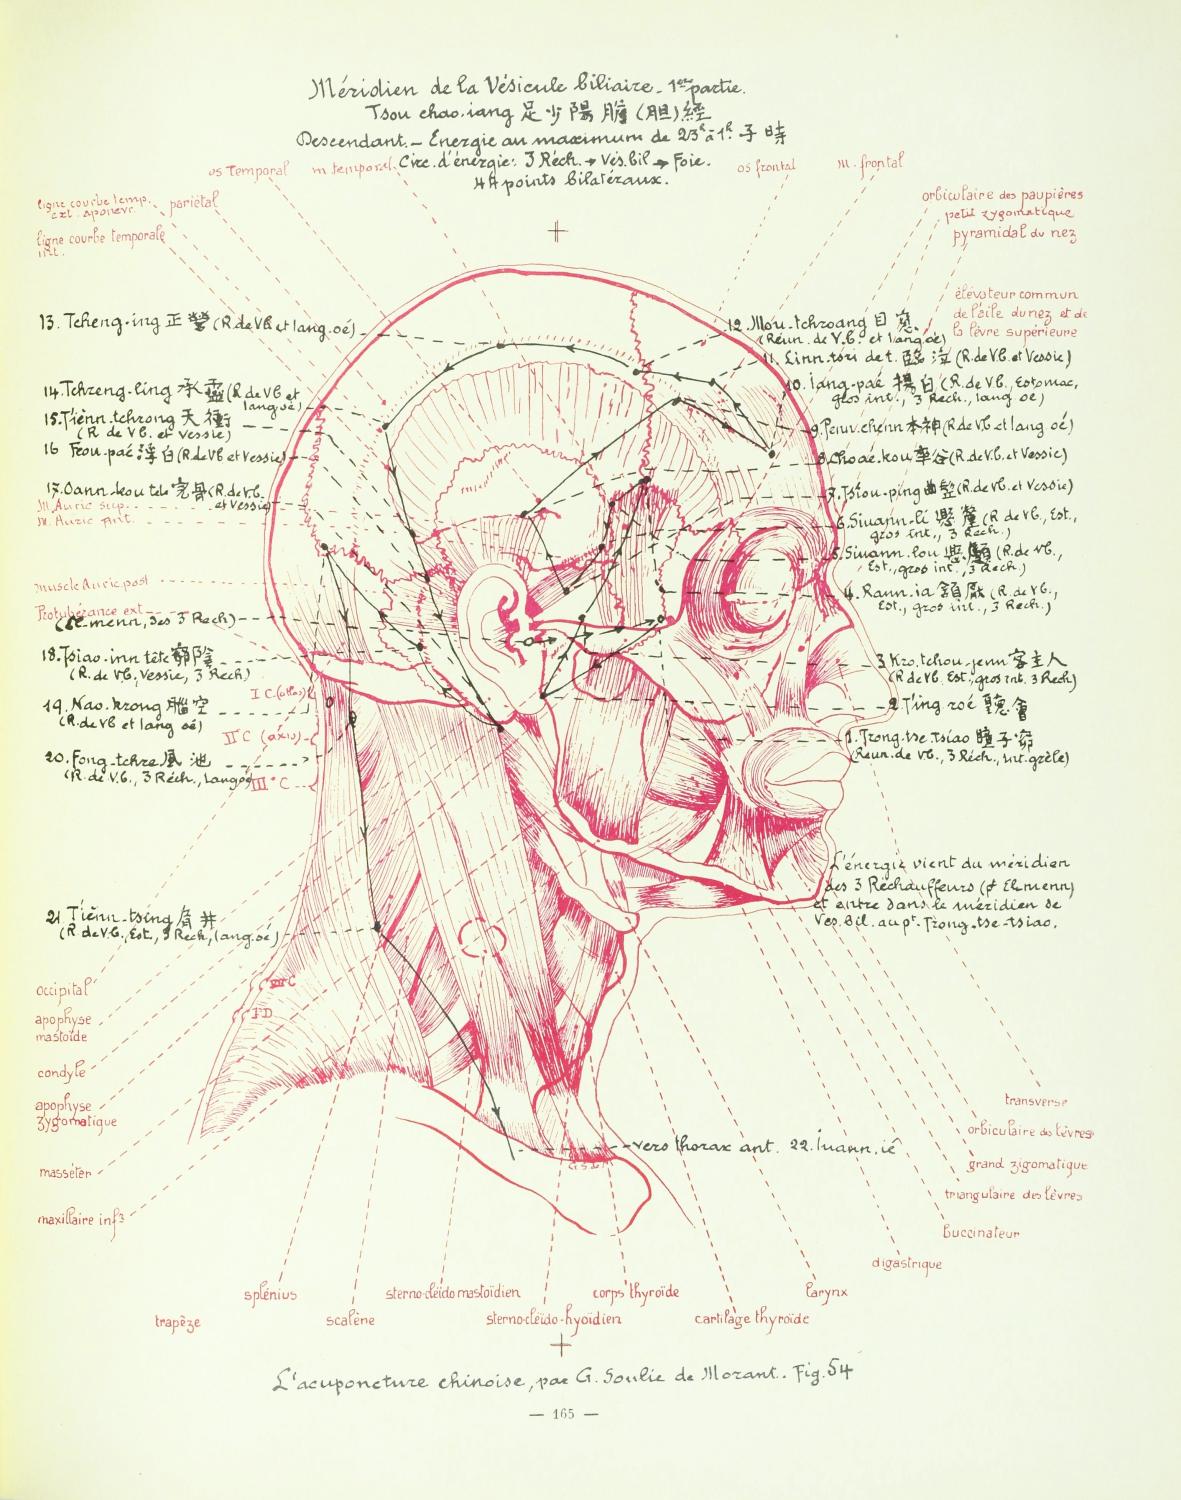 Méridien de la Vésicule biliaire _ 1ere partie.
Tsou chao.iang 足少陽膽(胆)經
Descendant. _ Énergie au maximum de 23h à 1h. 子時
Circ. d'énergie: 3 Réch. → Vés. bil → Foie.
44 points bilatéraux.
os Temporal
m temporal.
os frontal
m. frontal
ligne courbe temp.
ext. aponevr.
pariétal
ligne courbe temporale
int.
orbiculaire des paupières
petit zygomatique
pyramidal du nez
élévateur commun
de l'aile du nez et de
la lèvre supérieure
13. Tcheng-ing 正營 (R. de VB et Iang.oé)
14. Tchreng-ling 承靈 (R de VB et
Iang oé)
15. Tiénn.tchrong 天衝
(R de VB. et Vessie)
16 Feou-paé 浮白 (R. de VB et Vessie)
17. Oann-kou 完骨 (R. de VB.
et Vessie)
M. Auric sup.
M. Auric ant.
muscle Auric. post
Protubérance ext
(Él-menn, des 3 Réch)
18. Tsiao-inn tête 竅陰
(R. de VB, Vessie, 3 Réch)
19. Nao-krong 腦空
(R. de VB et Iang oé)
20. Fong-tchre 風池
(R. de V.B., 3 Réch., Iang oé)
I C. (atlas)
II C (axis)
III C
21. Tiénn-tsing 肩井
(R. de V.B., Est., 3 Réch, Iang.oé)
VII C
I D
12. Mou-tchroang 目窓
(Réun. de V.B. et Iang oé)
11. Linn-tsri de t. 臨泣 (R. de VB. et Vessie)
10. Iang-paé 揚白 (R. de VB., Estomac,
gros int., 3 Réch., Iang oé)
9. Penn.chenn 本神 (R de VB et Iang oé)
8. Choaé.kou 率谷 (R. de VB. et Vessie)
7. Tsiou-ping (R. de VB. et Vessie)
6. Siuann-li 懸釐 (R de VB., Est.,
gros int., 3 Réch.)
5. Siuann.lou 懸顱 (R. de VB.,
Est., gros int., 3 Réch.)
4. Rann-ia 頷厭 (R. de VB.,
Est., gros int., 3 Réch.)
3 Kro.tchou-jenn 客主人
(R de VB. Est., gros int. 3 Réch)
2. T'ing roé 聽會
1. Trong-tse-tsiao 瞳子窌
(Réun. de VB., 3 Réch., int. grêle)
L'énergie vient du méridien
des 3 Réchauffeurs (pt El-menn)
et entre dans le méridien de
Ves. bil. au pt. Trong-tse-tsiao.
occipital
apophyse
mastoïde
condyle
apophyse
zygomatique
masséter
maxillaire inf.
vers thorax ant. 22. Iuann.ié
transverse
orbiculaire des lèvres
grand zigomatique
triangulaire des lèvres
buccinateur
digastrique
splénius
sterno-cleïdo mastoïdien
corps thyroïde
larynx
trapèze
scalène
sterno-cleïdo-hyoïdien
cartilage thyroïde
L'acuponcture chinoise, par G. Soulié de Morant. Fig. 54
— 165 —